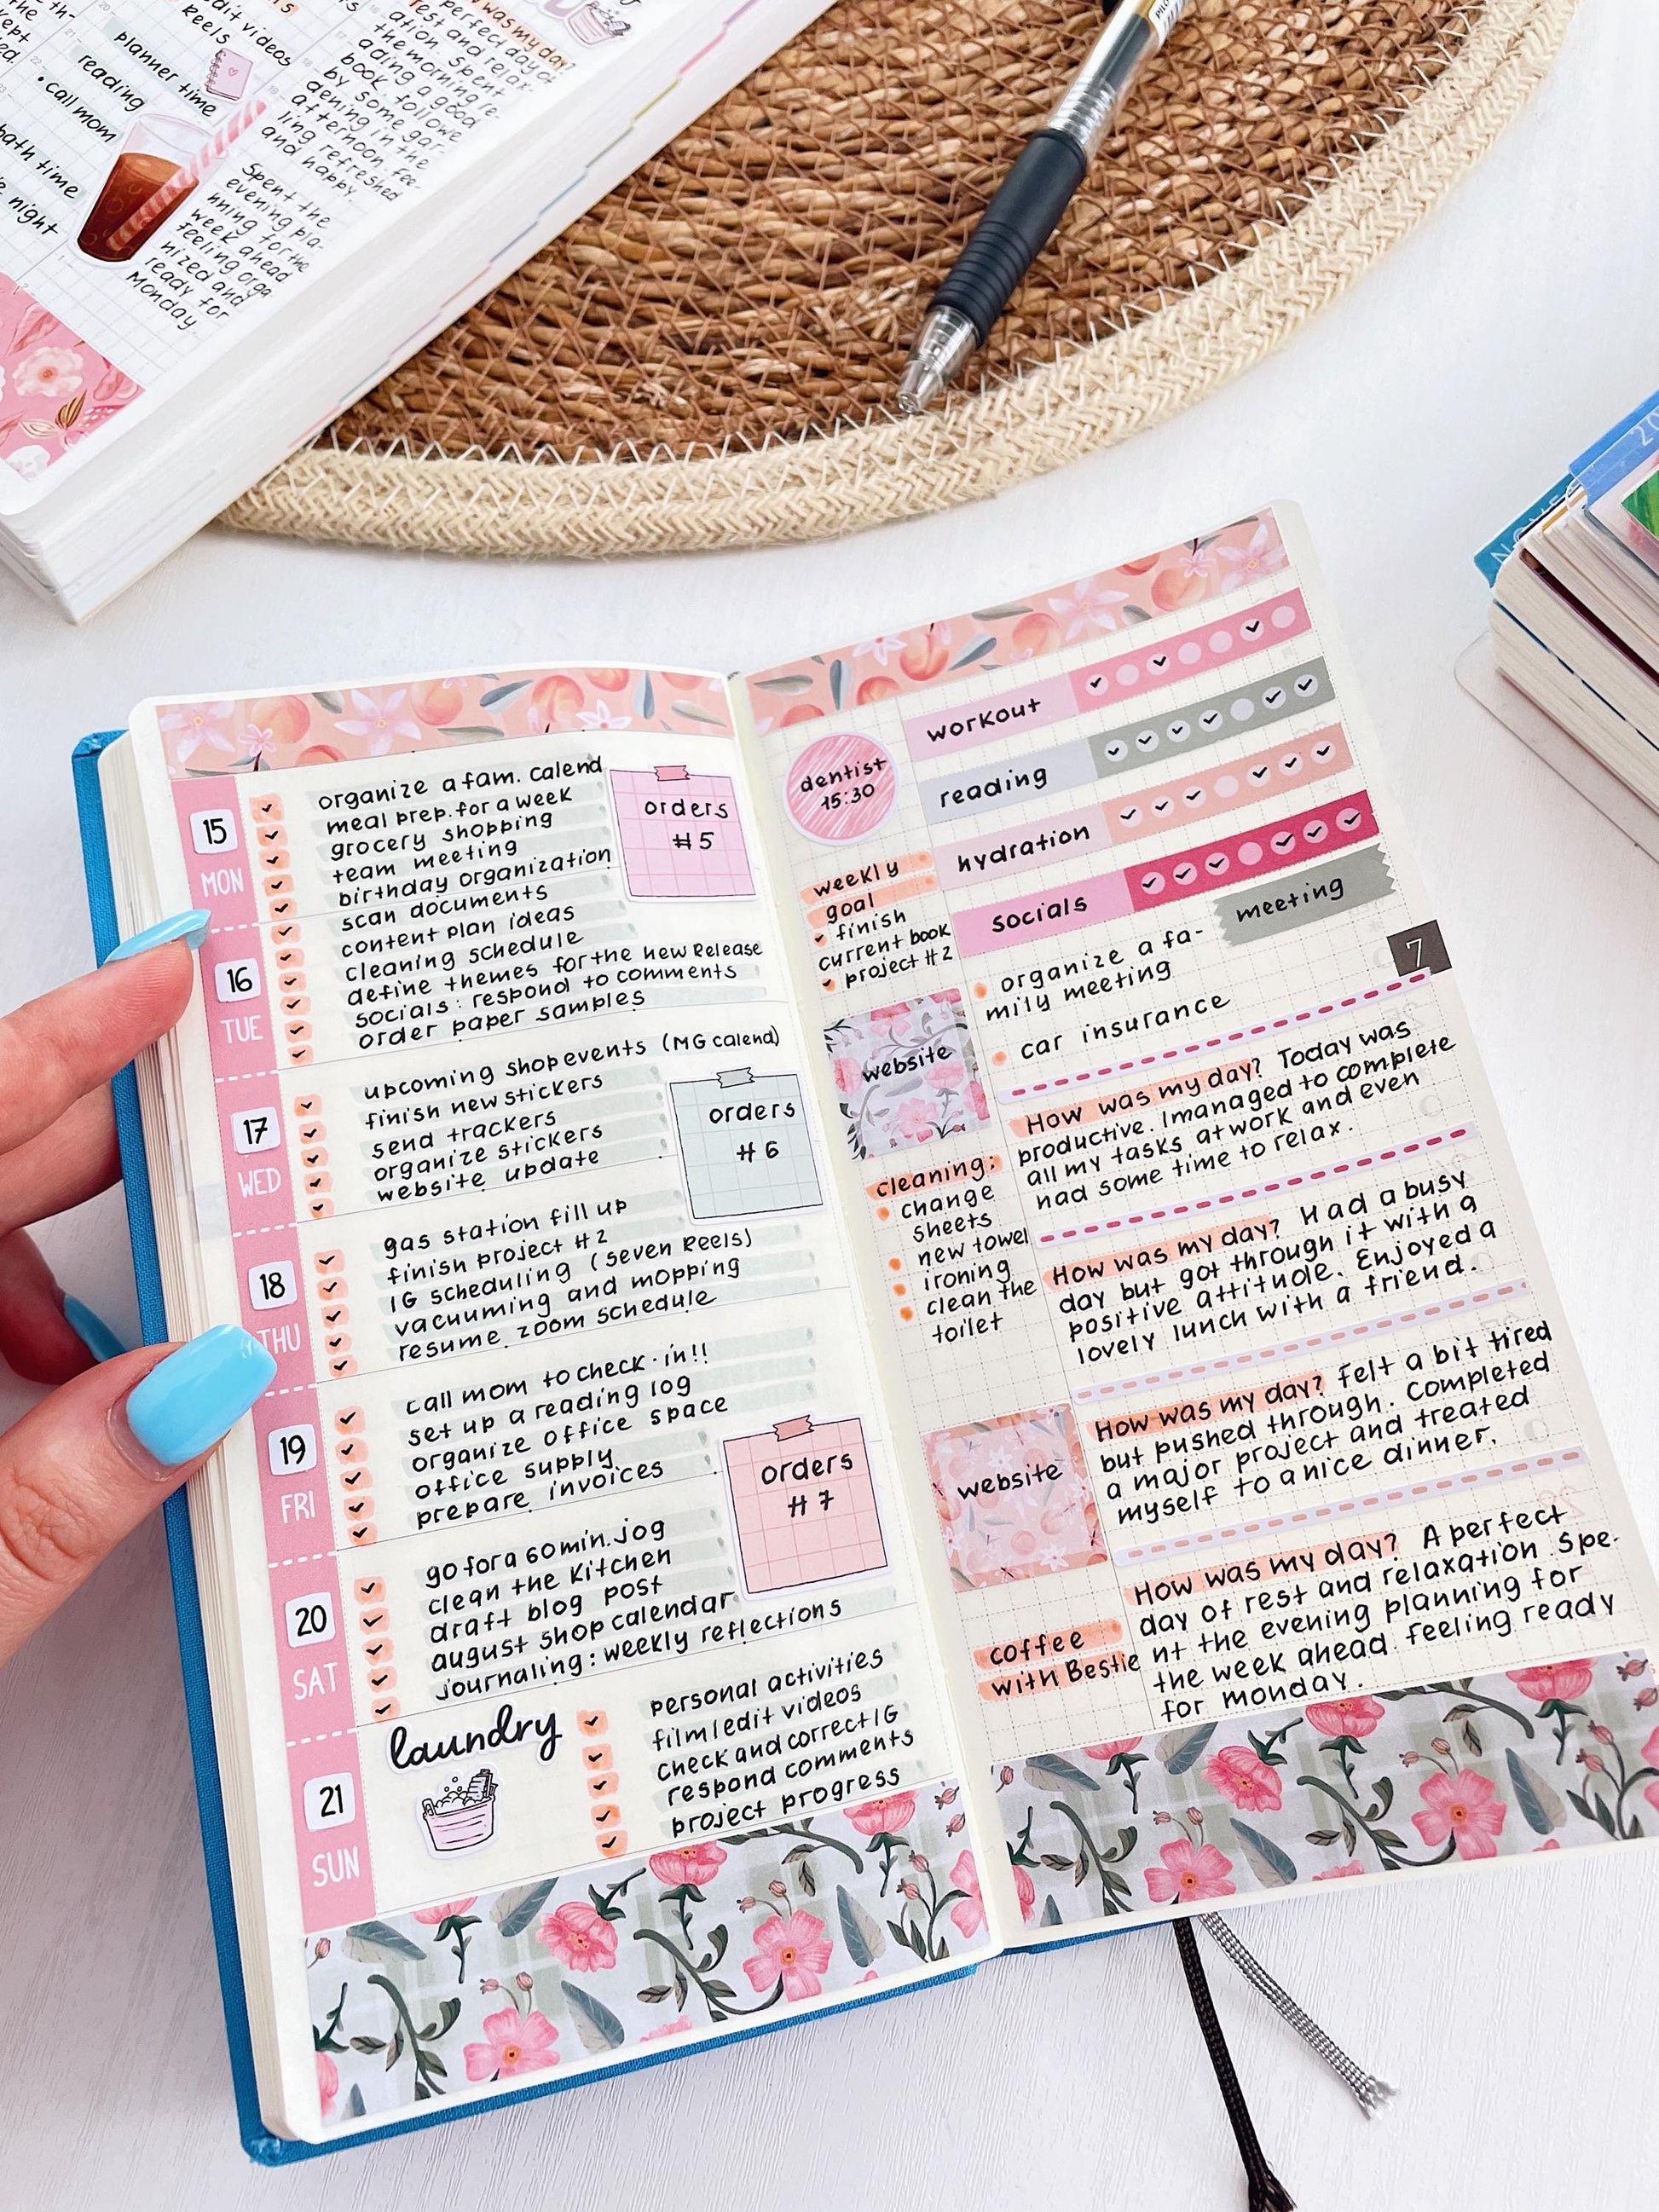 edit videos
Reels
planner time
reading
• call mom
bath time
night
was my day?
perfect day of
rest and relax-
ation. Spent
the morning re-
ading a good
book, followe
by some gar-
dening in the
afternoon, fee-
ling refreshed
and happy.
Spent the
evening pla-
nning for the
week ahead
feeling orga
nized and
ready for
Monday
PILO
20
NOVE
15
MON
organize a fam. calend
meal prep. for a week
grocery shopping
team meeting
birthday organization
orders
#5
16
TUE
scan documents
content plan ideas
cleaning schedule
define themes for the new Release
socials: respond to comments
order paper samples
17
WED
upcoming shop events (MG calend)
finish new stickers
send trackers
organize stickers
website update
orders
#6
18
THU
gas station fill up
finish project #2
IG scheduling (seven Reels)
vacuuming and mopping
resume zoom schedule
19
FRI
call mom to check-in!!
set up a reading log
organize office space
office supply
prepare invoices
orders
#7
20
SAT
go for a 60min. jog
clean the kitchen
draft blog post
august shop calendar
journaling: weekly reflections
21
SUN
laundry
personal activities
film/edit videos
check and correct IG
respond comments
project progress
dentist
15:30
workout
reading
hydration
socials
meeting
7
weekly
goal
finish
current book
project #2
organize a fa-
mily meeting
car insurance
website
How was my day? Today was
productive. I managed to complete
all my tasks at work and even
had some time to relax.
cleaning:
change
sheets
new towel
ironing
clean the
toilet
How was my day? Had a busy
day but got through it with a
positive attitude. Enjoyed a
lovely lunch with a friend.
How was my day? Felt a bit tired
but pushed through. Completed
a major project and treated
myself to a nice dinner.
website
How was my day? A perfect
day of rest and relaxation. Spe-
nt the evening planning for
the week ahead. feeling ready
for monday.
coffee
with Bestie